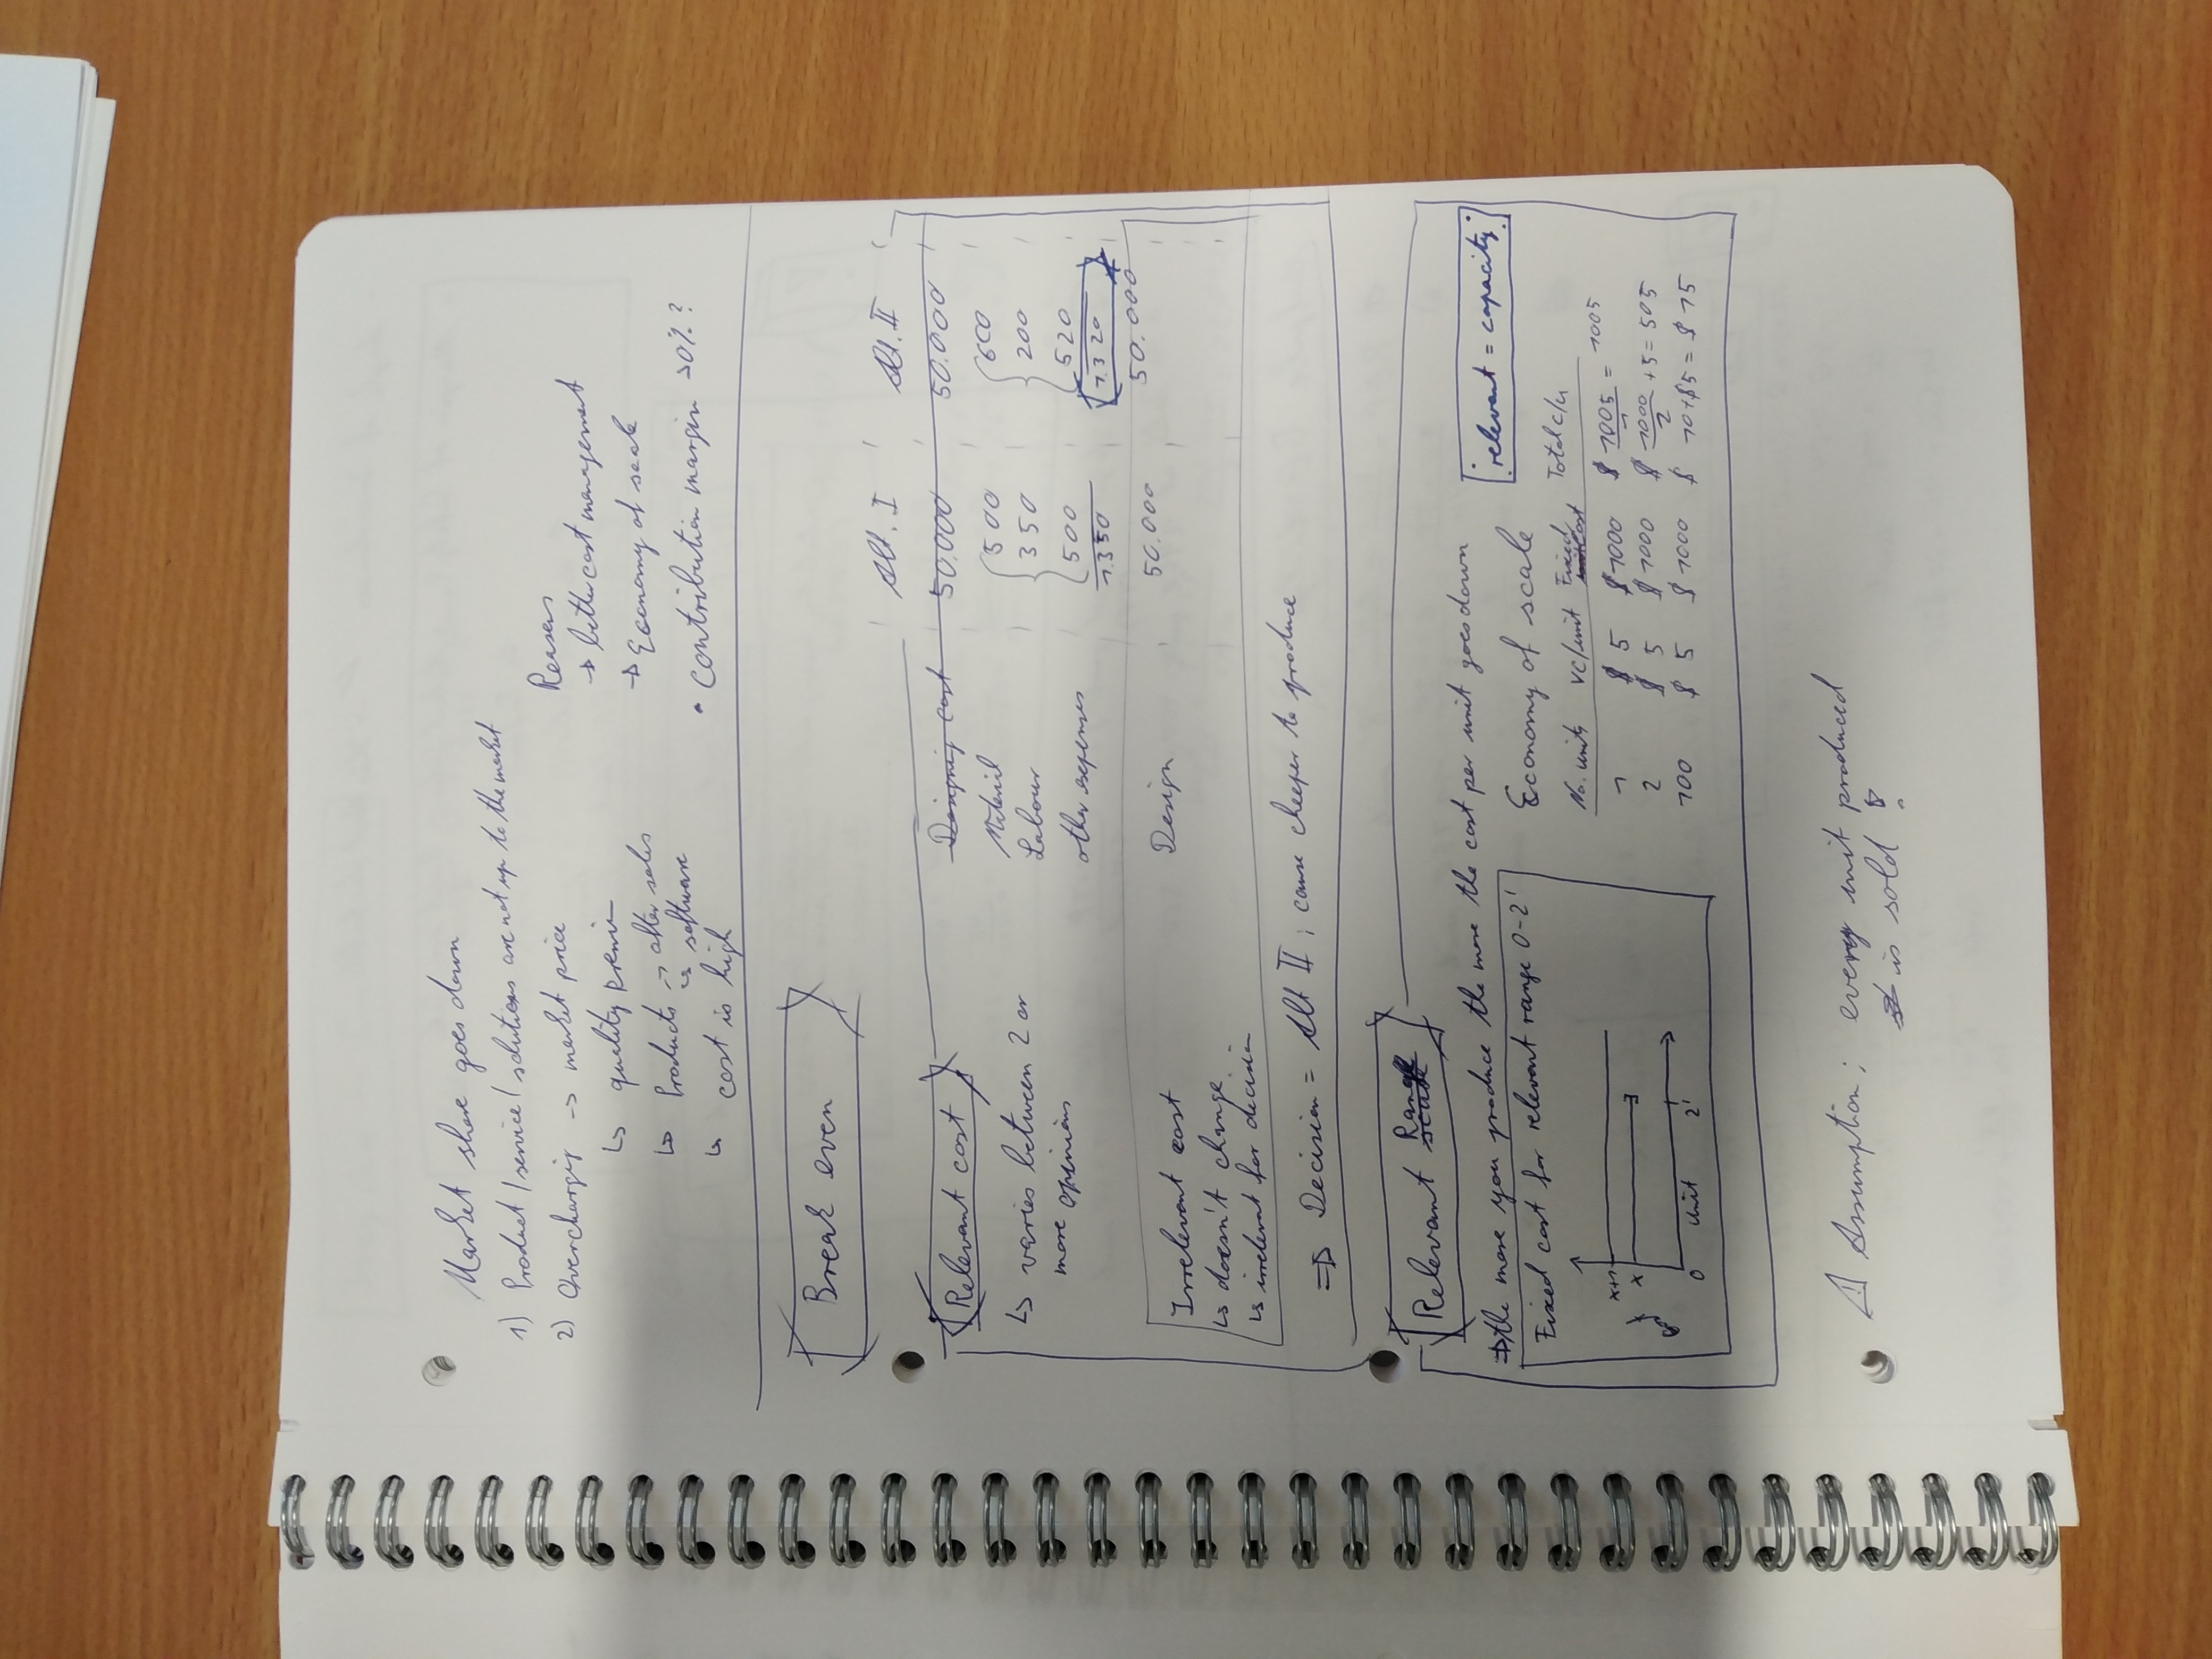 Market share goes down
1) Product / service / solutions are not up to the market
2) Overcharging → market price
↳ quality premium
↳ Products → after sales
↳ software
↳ cost is high
Reasons
→ better cost management
→ Economy of scale
• contribution margin 20%?
Break even
Relevant cost
↳ varies between 2 or
more opinions
Alt. I Alt. II
Designing cost 50.000 50.000
Material 500 600
Labour 350 200
other expenses 500 520
1.350 1.320
Design 50.000 50.000
Irrelevant cost
↳ doesn't change
↳ is irrelevant for decision
⇒ Decision = Alt II ; cause cheeper to produce
Relevant Range
⇒ the more you produce the more the cost per unit goes down
relevant = capacity
Fixed cost for relevant range 0-2'
x+1
x
$
0 Unit 2'
Economy of scale
No. units VC/unit Fixed cost Total c/u
1 $ 5 $ 1000 $ 1005/1 = 1005
2 $ 5 $ 1000 $ 1000/2 +5 = 505
100 $ 5 $ 1000 $ 10+$5 = $ 15
Assumption ; every unit produced
is sold !